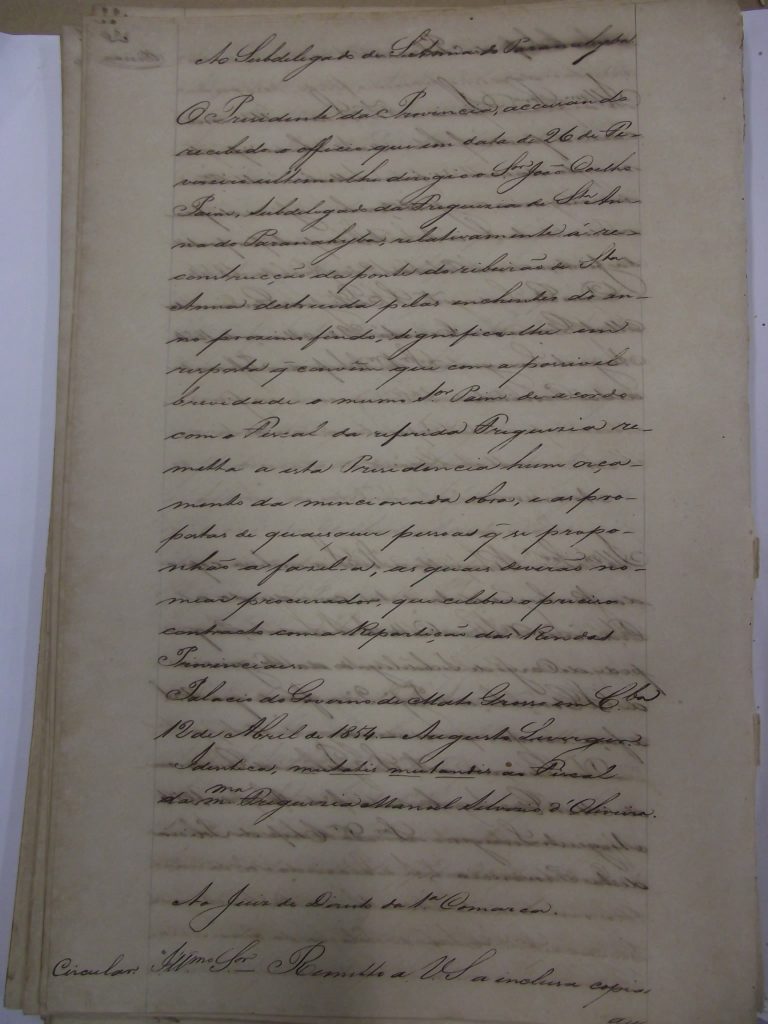 Ao Subdelegado de Sta Anna do Paranahyba
O Presidente da Provincia, accusando
recebido o officio que em data de 26 de Fe-
vereiro ultimo lhe dirigio o Snr João Coelho
Paim, Subdelegado da Freguezia de Sta An-
na do Paranahyba, relativamente á re-
construcção da ponte do ribeirão de Sta
Anna destruida pelas enchentes do an-
no proximo findo, significa-lhe em
resposta q̃ convêm que com a possivel
brevidade o mesmo Snr Paim de acordo
com o Fiscal da referida Freguezia re-
metta a esta Presidencia hum orça-
mento da mencionada obra, e as pro-
postas de quaesquer pessoas q̃ se propo-
nhão a fasel-a, as quaes deverão no-
mear procurador, que celebre o preciso
contracto com a Repartição das Rendas
Provinciaes.
Palacio do Governo de Mato Grosso em C.bá
12 de Abril de 1854. Augusto Leverger.
Identica, mutatis mutandis ao Fiscal
da mma Freguezia Manoel Silverio d'Oliveira.
Ao Juiz de Direito da 1.a Comarca.
Circular. Illmo Snr Remetto a V S a inclusa copia